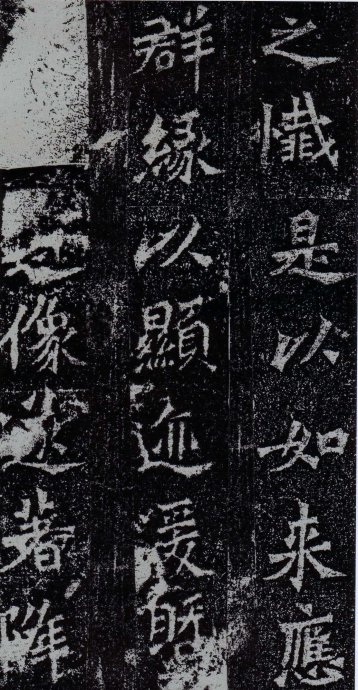 之懺是以如來應
群緣以顯迹爰暨
像遂著降